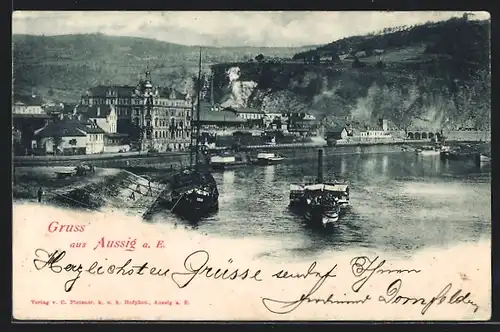 Gruss
aus Aussig a. E.
Herzlichsten Grüsse sendet Ihnen
Dornfelder
Verlag v. C. Pietzner, k. u. k. Hofphot., Aussig a. E.